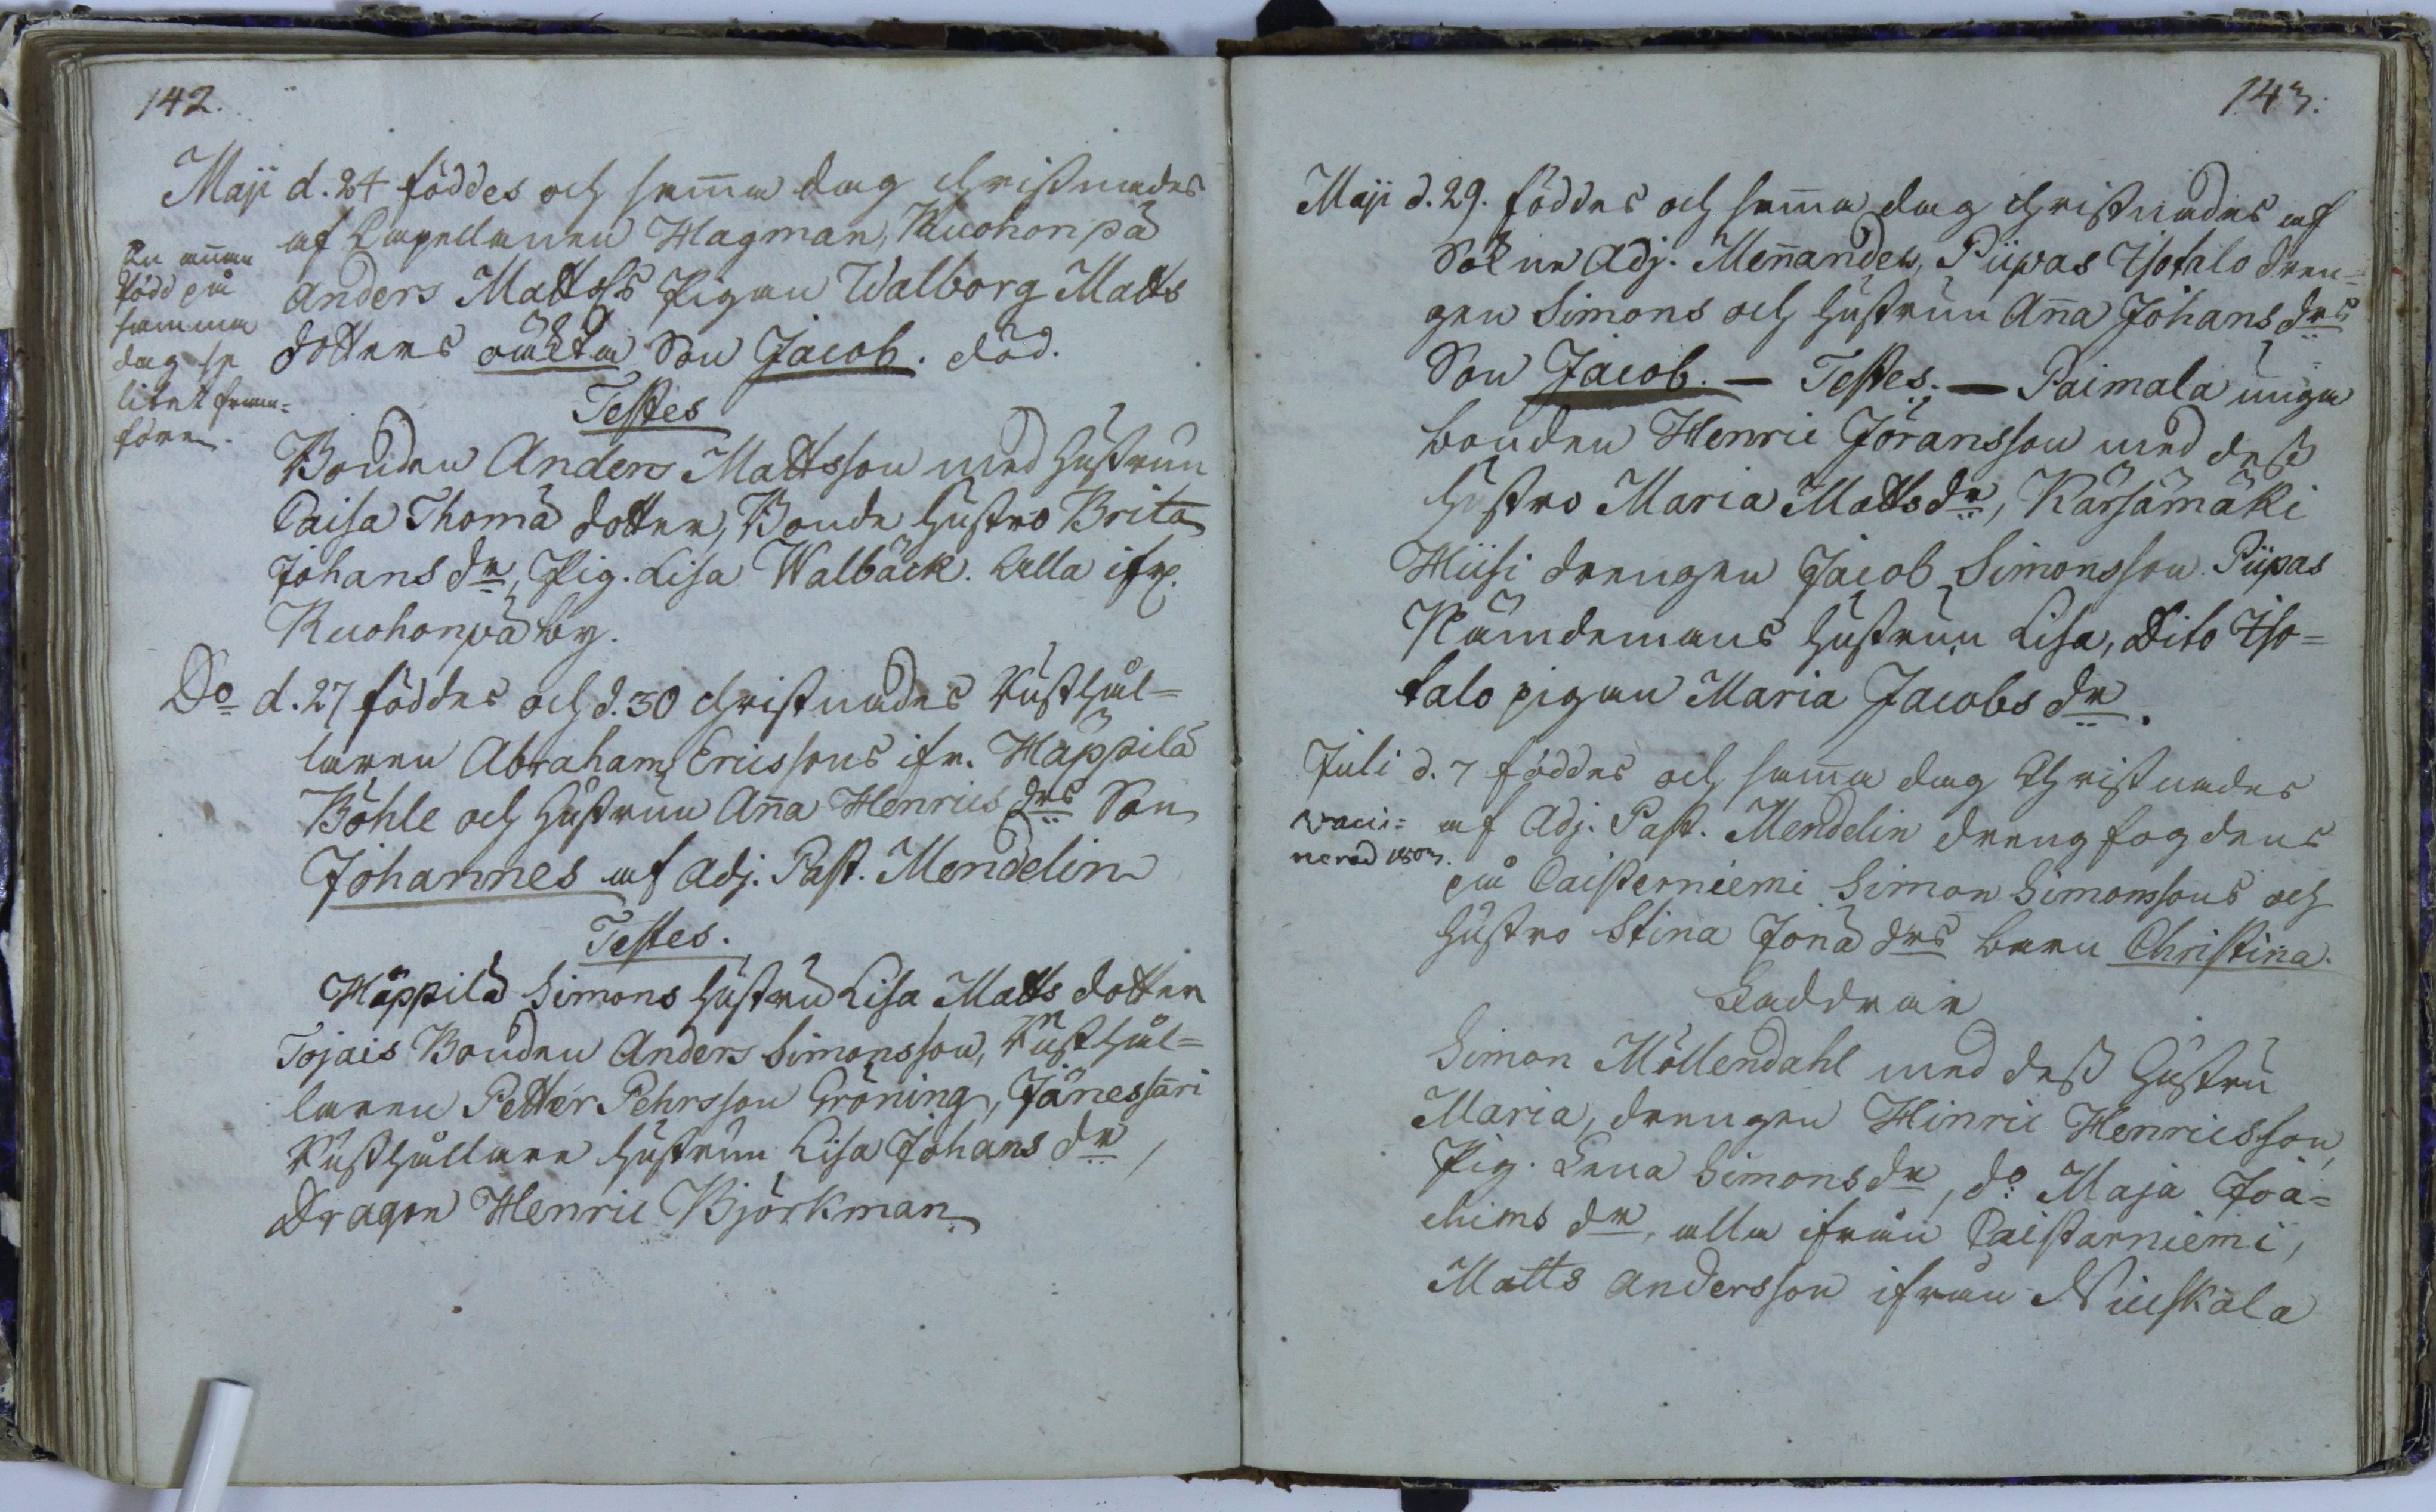 142.
Maji d. 24 föddes och samma dag christnades
af Capellanen Hagman, Ruohonpä
Anders Mattss Pigan Walborg Matts
dotters oäckta Son Jacob. död.
En annan
född på
samma
dag se
litet fram=
före.
Testes
Bonden Anders Mattsson med hustrun
Caisa Thomä dotter, Bonde hustro Brita
Johans dr, Pig. Lisa Walbäck. alla ifr.
Ruohonpä by.
Do d. 27 föddes och d. 30 christnades Rusthål=
laren Abraham Ericssons ifr. Häppilä
Böhle och hustrun Anna Henrics drs Son
Johannes af Adj. Past. Mendelin
Testes.
Häppilä Simons hustru Lisa Matts dotter
Tojais Bonden Anders Simonsson, Rusthål=
laren Petter Pehrsson Gröning, Jänessari
Rusthållare hustrun Lisa Johans dr,
Dragon Henric Björkman
143.
Maji d. 29. föddes och samma dag christnades af
Sokne Adj. Mennander, Piipas Isotalo dren=
gen Simons och hustrun Anna Johans drs
Son Jacob. — Testes. — Paimala unga
bonden Henric Jöransson med dess
hustro Maria Matts dr, Kärsämäki
Hiisi drengen Jacob Simonsson. Piipas
Nämdemans hustrun Lisa, Dito Iso=
talo pigan Maria Jacobs dr.
Juli d. 7 föddes och samma dag Christnades
vacci=
nerad 1803.
af Adj. Past. Mendelin dreng fogdens
på Caisterniemi Simon Simonssons och
hustro Stina Jonä drs barn Christina.
Faddrar
Simon Möllendahl med dess hustru
Maria, drengen Hinric Henricsson,
Pig. Lena Simons dr, do Maja Joa=
chims dr, alla ifrån Caistarniemi,
Matts Andersson ifrån Nuuskala